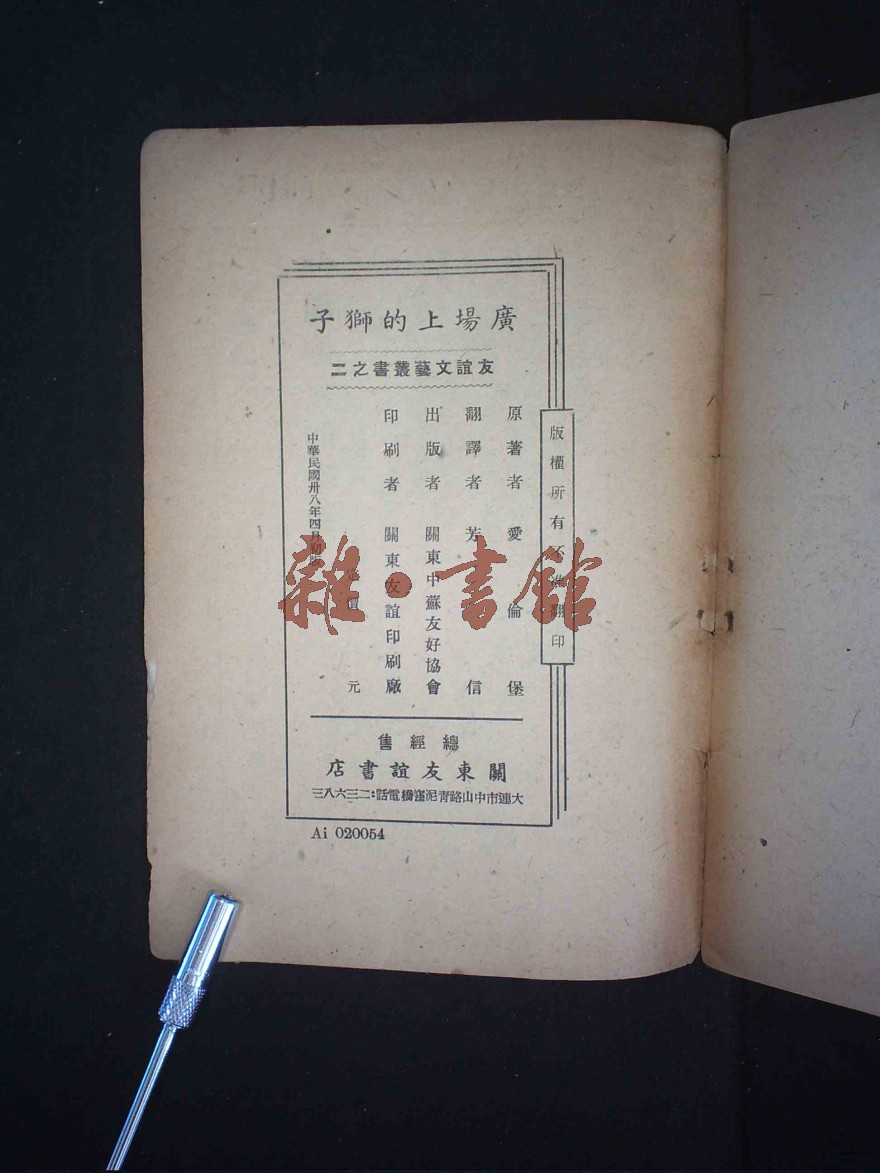 廣場上的獅子
友誼文藝叢書之二
版權所有不准翻印
原著者 愛倫堡
翻譯者 芳信
出版者 關東中蘇友好協會
印刷者 關東友誼印刷廠
元
中華民國卅八年四月初版
總經售
關東友誼書店
大連市中山路青泥窪橋電話:二三六八三
Ai 020054
雜·書館